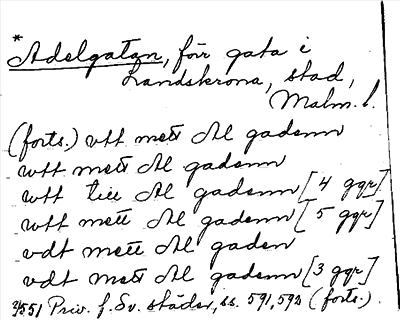 *
Adelgatan, förr gata i
Landskrona, stad,
Malm. l.
(forts.) vtt mett Al gadenn
wtt mett Al gadenn
wtt till Al gadenn [4 ggr]
wtt mett Al gadenn [5 ggr]
vdt mett Al gaden
vdt mett Al gadenn [3 ggr]
1551 Priv. f. Sv. städer, ss. 591, 592 (forts.).